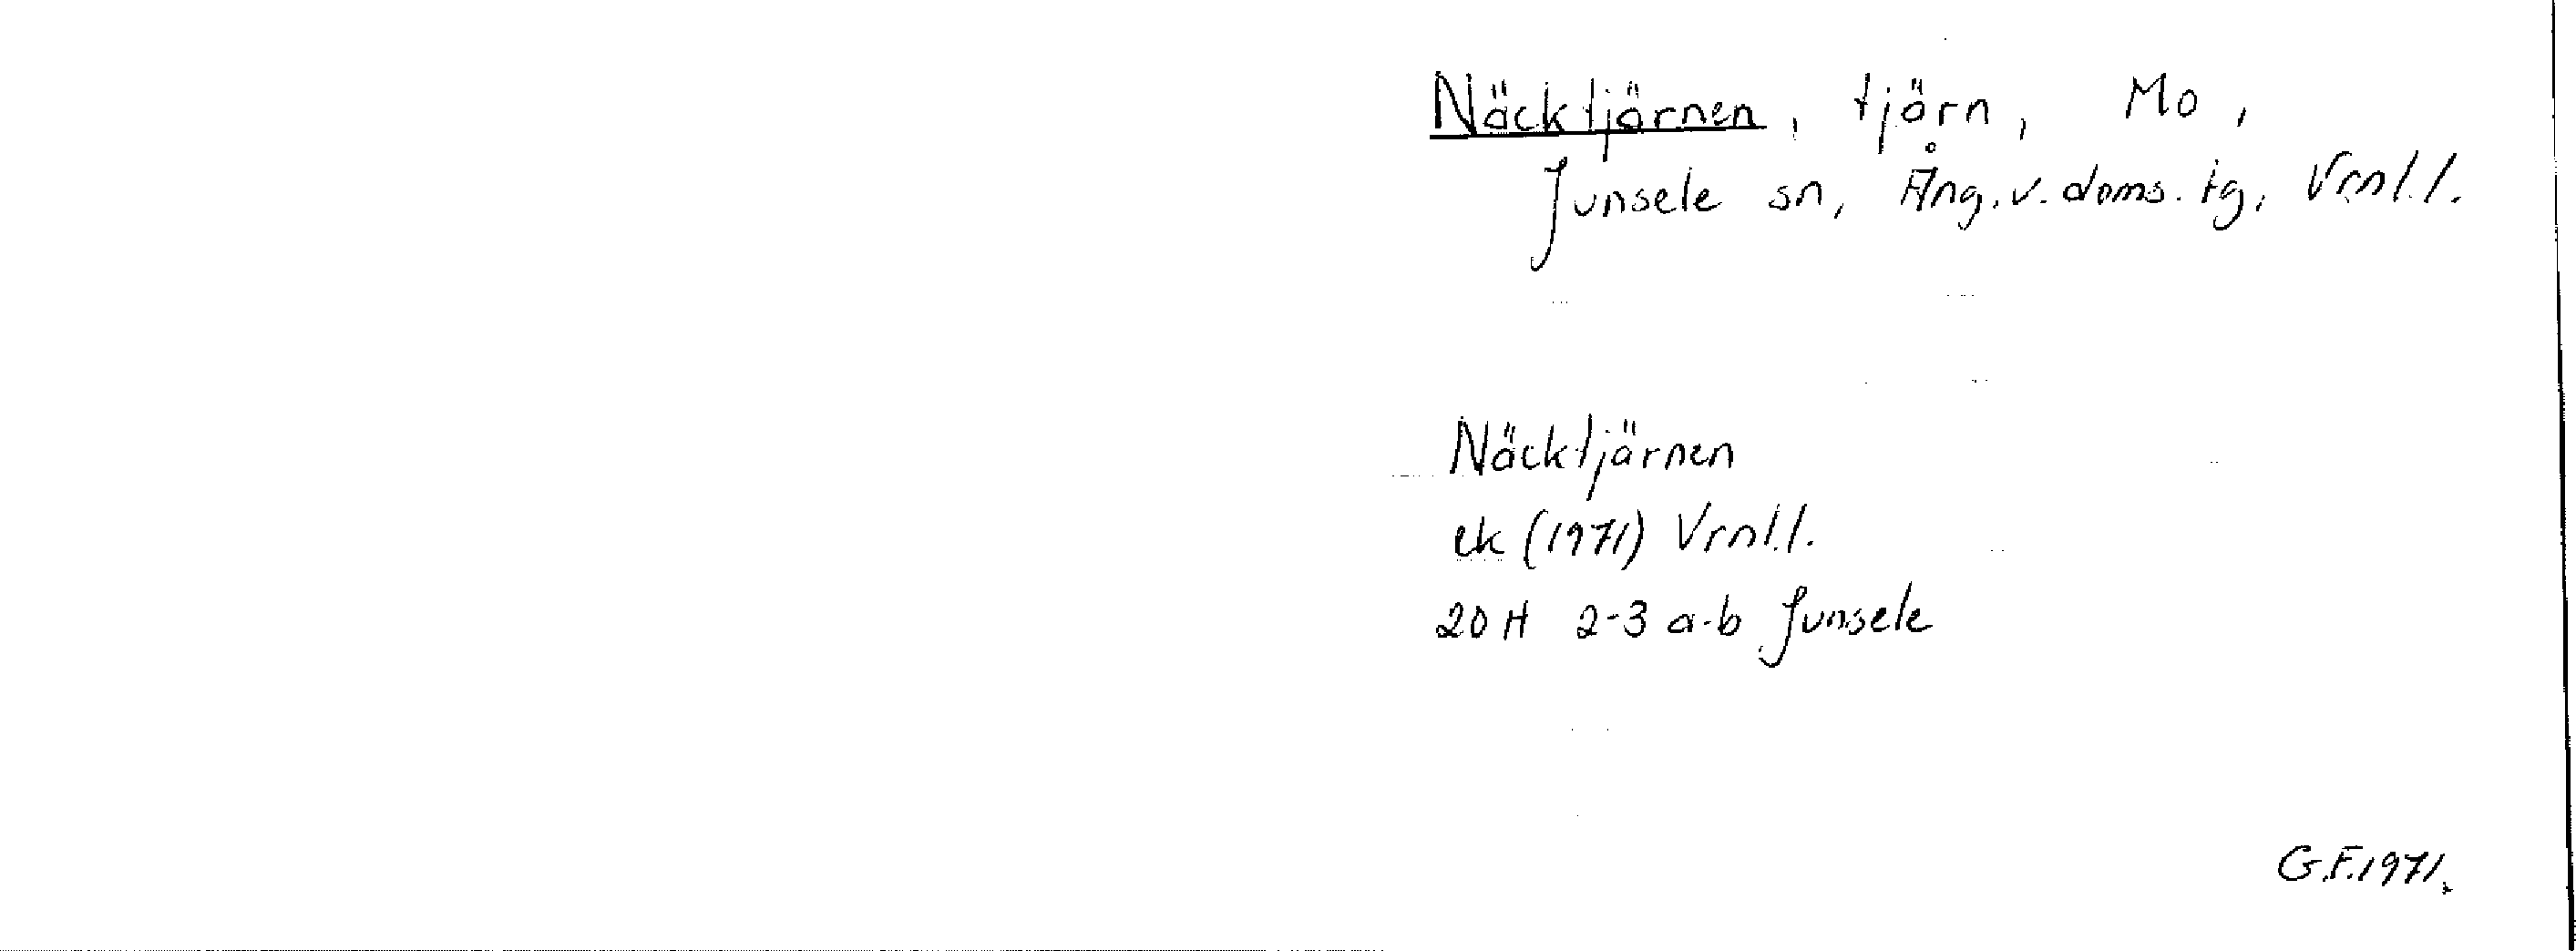 Näcktjärnen, tjärn, Mo,
Junsele sn, Ång.v.doms.tg, Vrnl.l.
Näcktjärnen
ek (1971) Vrnl.l.
20 H 2-3 a-b Junsele
G.F.1971.